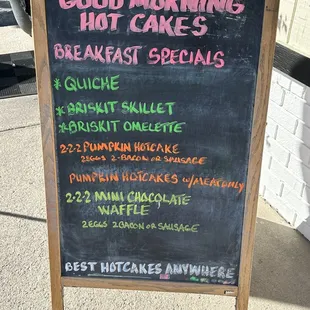 GOOD MORNING
HOT CAKES
BREAKFAST SPECIALS
* QUICHE
* BRISKIT SKILLET
* BRISKIT OMELETTE
2-2-2 PUMPKIN HOTCAKE
2EGGS 2-BACON OR SAUSAGE
PUMPKIN HOTCAKES W/MEAT ONLY
2-2-2 MINI CHOCOLATE
WAFFLE
2EGGS 2BACON OR SAUSAGE
BEST HOTCAKES ANYWHERE